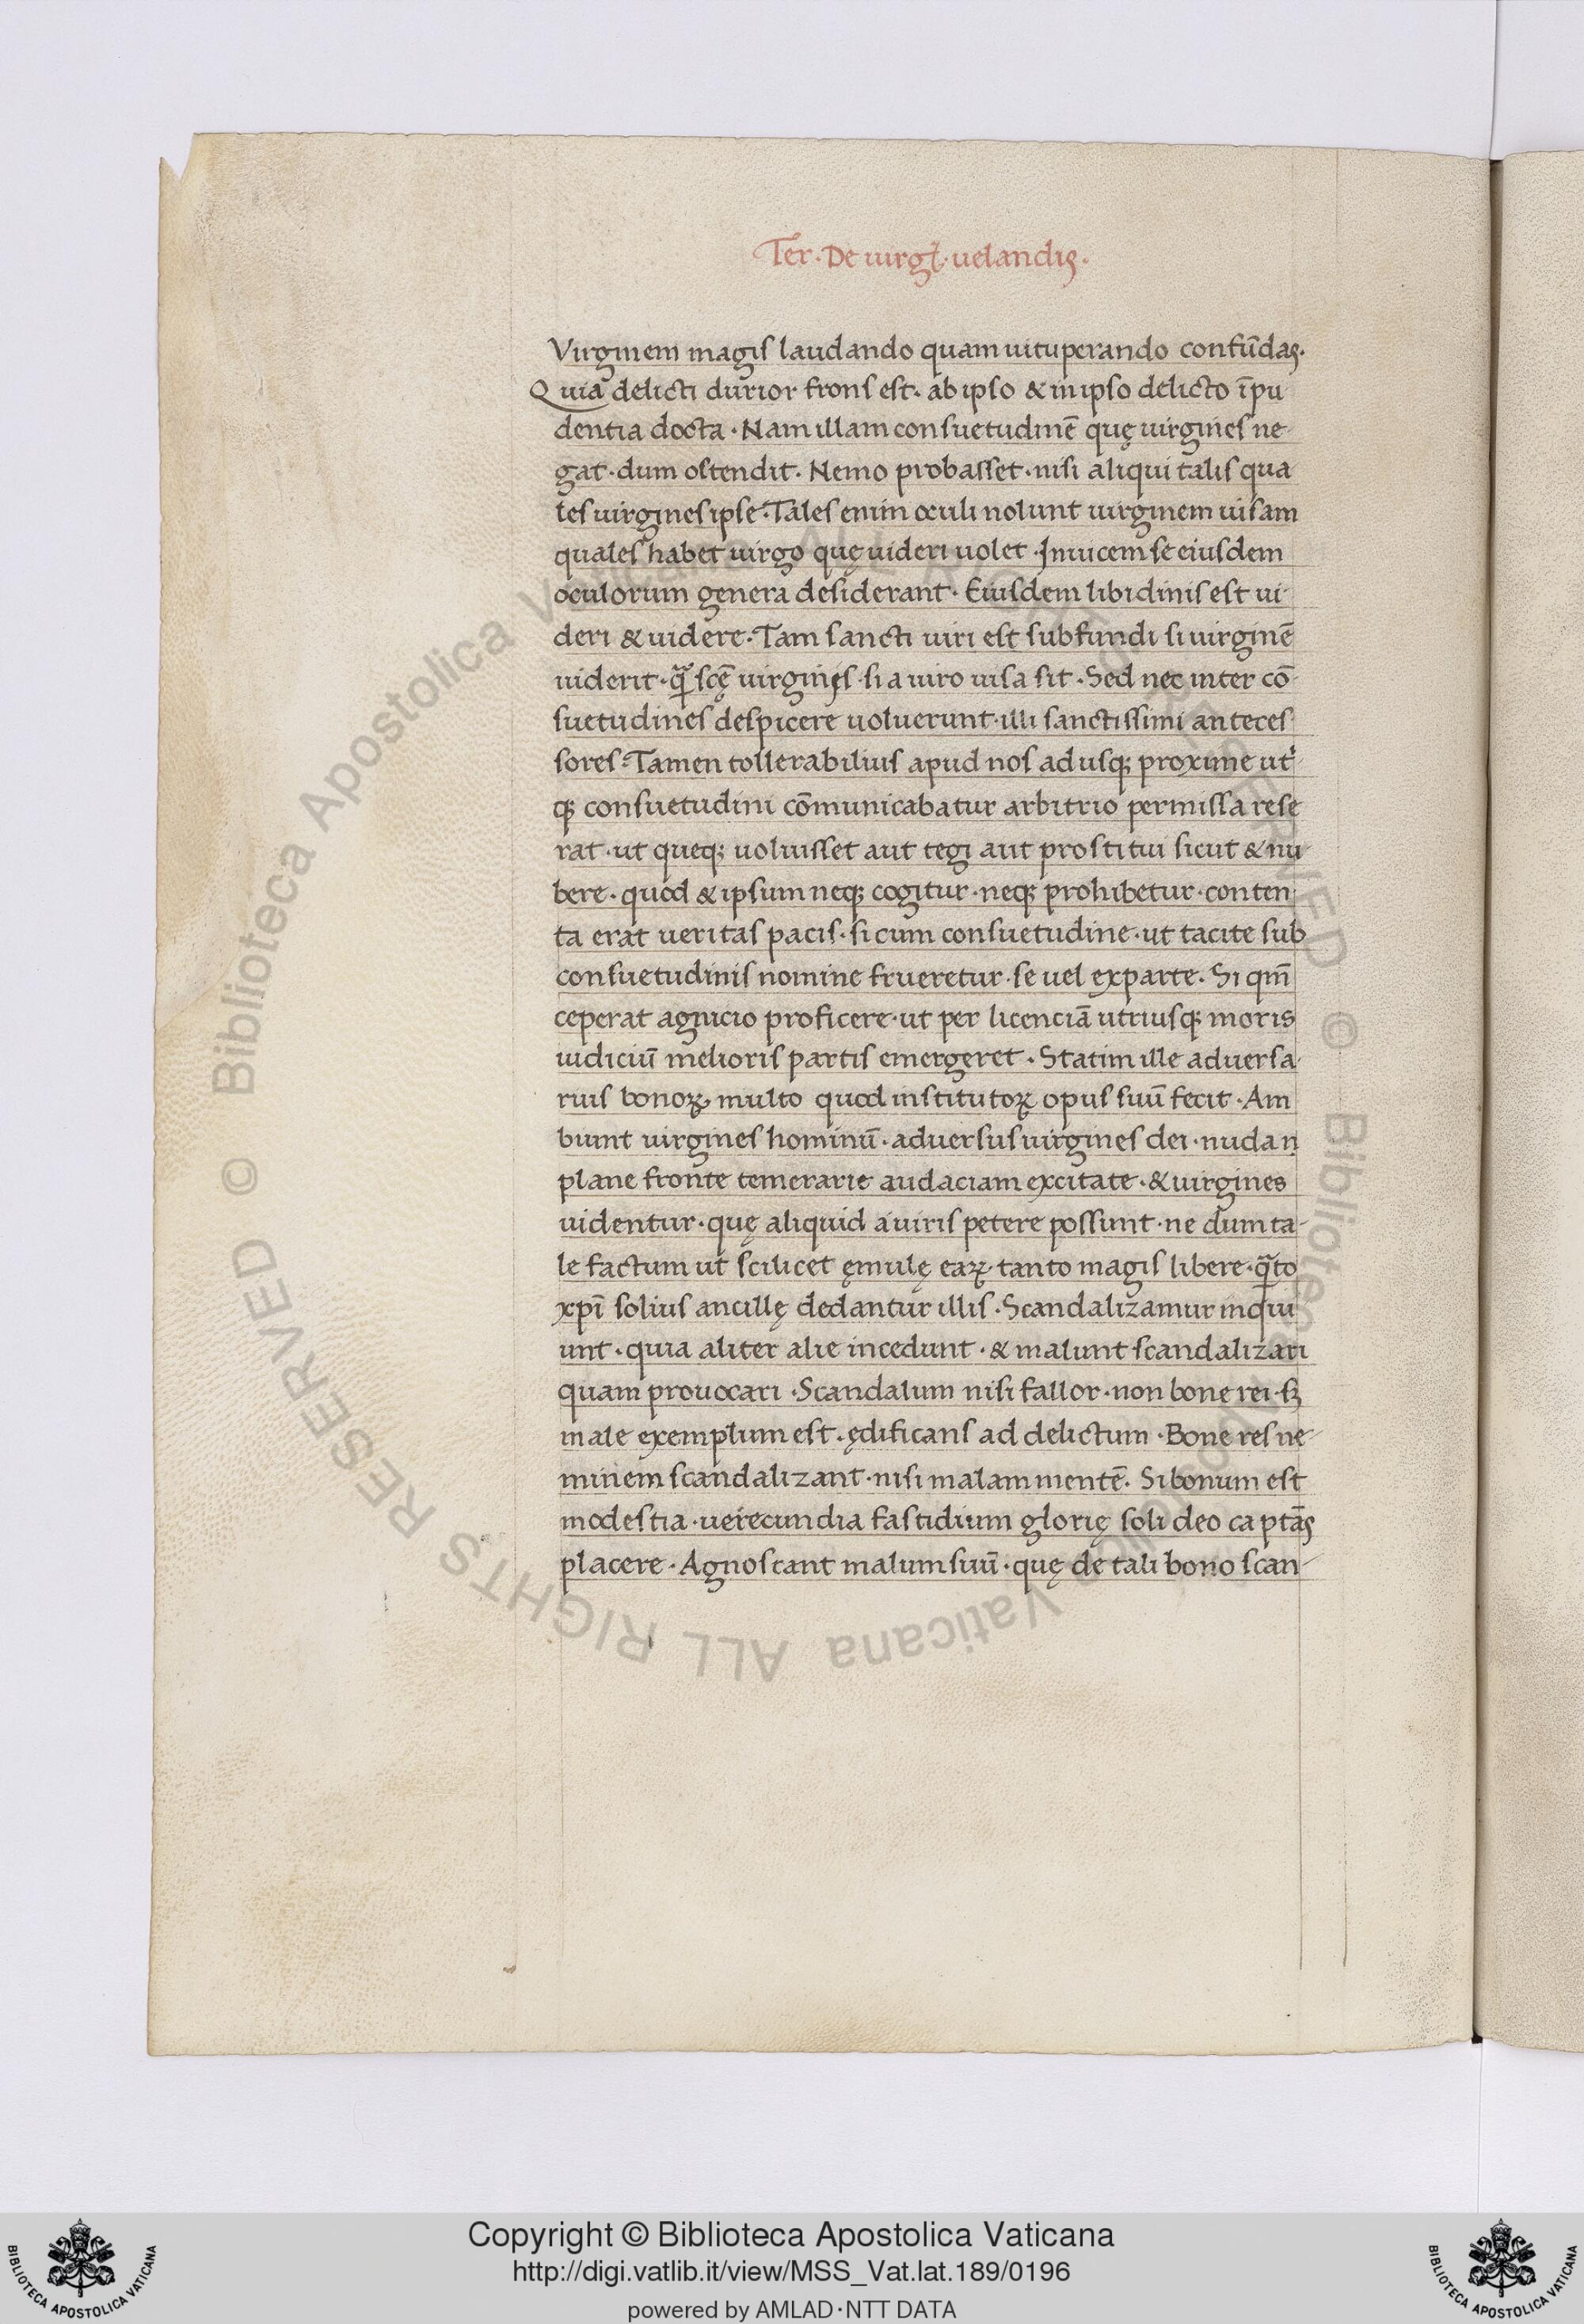 Ter · De uirgı̄ · uelandis ·
Virginem magis laudando quam uituperando confūdas.
Quia delicti durior frons est · ab ipso & in ipso delicto īpu
dentia docta · Nam illam consuetudinē quę uirgines ne-
gat · dum ostendit · Nemo probasset · nisi aliqui talis qua
les uirgines ipse · Tales enim oculi nolunt uirginem uisam
quales habet uirgo quę uideri uolet · Inuicem se eiusdem
oculorum genera desiderant · Eiusdem libidinis est ui-
deri & uidere · Tam sancti uiri est subfundi si uirginē
uiderit · qꝫ scę̄ uirginis · si a uiro uisa sit · Sed nec inter cō-
suetudines despicere uoluerunt · illi sanctissimi anteces
sores · Tamen tollerabilius apud nos ad usqꝫ proxime ut-
qꝫ consuetudini cōmunicabatur arbitrio permissa rese
rat · ut queqꝫ uoluisset aut tegi aut prostitui sicut & nu
bere · quod & ipsum neqꝫ cogitur · neqꝫ prohibetur · conten
ta erat ueritas pacis · si cum consuetudine · ut tacite sub
consuetudinis nomine frueretur · se uel ex parte · Si qm̄
ceperat agnicio proficere · ut per licenciā utriusqꝫ moris
iudiciū melioris partis emergeret · Statim ille aduersa-
rius bonoꝝ multo quod institutoꝝ opus suū fecit · Am
biunt uirgines hominū · aduersus uirgines dei · nudan
plane fronte temerarie audaciam excitate · & uirgines
uidentur · quę aliquid a uiris petere possunt · ne dum ta-
le factum ut scilicet ęmulę eaꝝ · tanto magis libere · qāto
xpī solius ancillę dedantur illis · Scandalizamur inqui
unt · quia aliter alie incedunt · & malunt scandalizari
quam prouocari · Scandalum nisi fallor · non bone rei · sꝫ
male exemplum est · ędificans ad delictum · Bone res ne-
minem scandalizant · nisi malam mentē · Si bonum est
modestia · uerecundia fastidium glorię soli deo captās
placere · Agnoscant malum suū · quę de tali bono scan-
© Biblioteca Apostolica Vaticana ALL RIGHTS RESERVED © Biblioteca Apostolica Vaticana ALL RIGHTS RESERVED
Copyright © Biblioteca Apostolica Vaticana
http://digi.vatlib.it/view/MSS_Vat.lat.189/0196
powered by AMLAD·NTT DATA
BIBLIOTECA APOSTOLICA VATICANA
BIBLIOTECA APOSTOLICA VATICANA